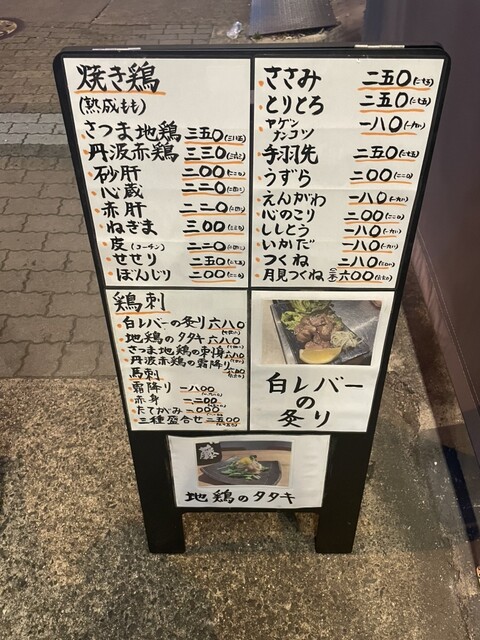 焼き鶏
(熟成もも)
さつま地鶏 三五〇
丹波赤鶏 三三〇
砂肝 二〇〇
心蔵 二二〇
赤肝 二二〇
ねぎま 三〇〇
皮(コーチン) 二二〇
せせり 二五〇
ぼんじり 二〇〇
ささみ 二五〇
とりとろ 二五〇
ヤゲンナンコツ 一八〇
手羽先 二五〇
うずら 二〇〇
えんがわ 一八〇
心のこり 二〇〇
ししとう 一八〇
いかだ 一八〇
つくね 二八〇
月見つくね 六〇〇
鶏刺
白レバーの炙り 六八〇
地鶏のタタキ 六八〇
さつま地鶏の刺身 六八〇
丹波赤鶏の霜降り
馬刺
霜降り 一八〇〇
赤身 一二〇〇
たてがみ 一〇〇〇
三種盛合せ 二五〇〇
白レバー
の
炙り
地鶏のタタキ